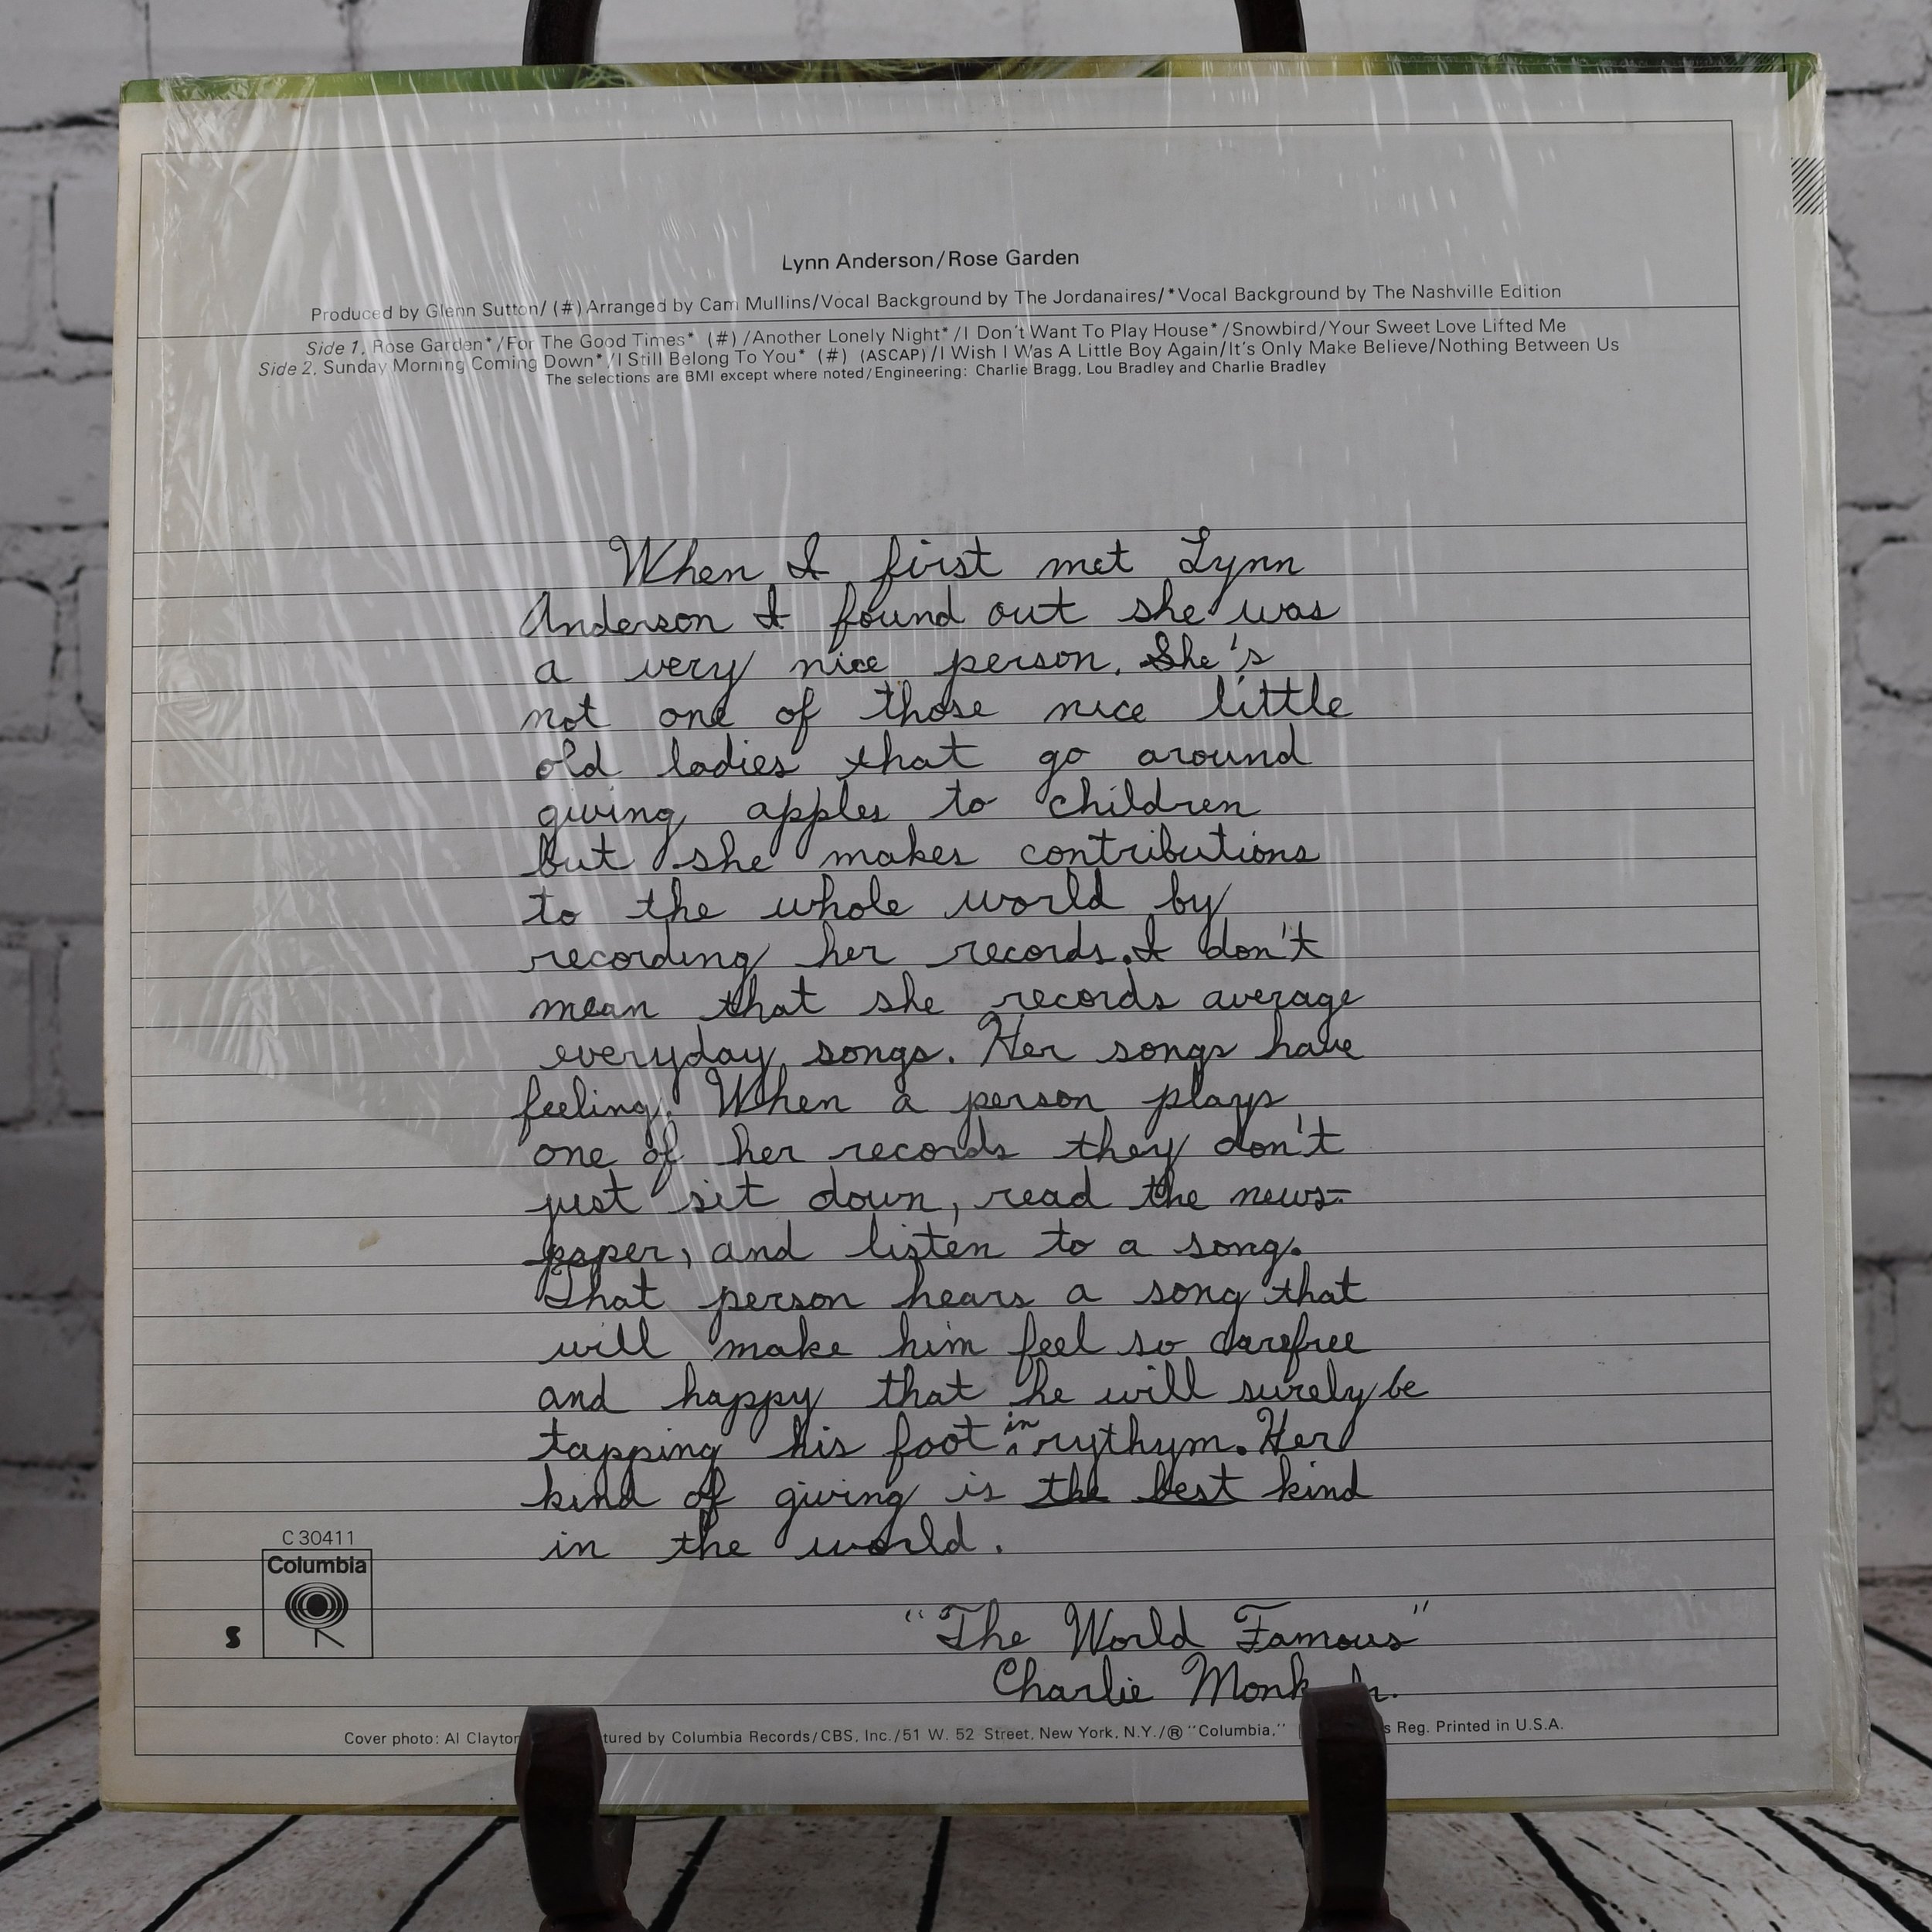 Lynn Anderson/Rose Garden
Produced by Glenn Sutton/ (#) Arranged by Cam Mullins/Vocal Background by The Jordanaires/*Vocal Background by The Nashville Edition
Side 1. Rose Garden*/For The Good Times* (#)/Another Lonely Night*/I Don't Want To Play House*/Snowbird/Your Sweet Love Lifted Me
Side 2. Sunday Morning Coming Down*/I Still Belong To You* (#) (ASCAP)/I Wish I Was A Little Boy Again/It's Only Make Believe/Nothing Between Us
The selections are BMI except where noted/Engineering: Charlie Bragg, Lou Bradley and Charlie Bradley
When I first met Lynn
Anderson I found out she was
a very nice person. She's
not one of those nice little
old ladies that go around
giving apples to children
but she makes contributions
to the whole world by
recording her records. I don't
mean that she records average
everyday songs. Her songs have
feeling. When a person plays
one of her records they don't
just sit down, read the news-
paper, and listen to a song.
That person hears a song that
will make him feel so carefree
and happy that he will surely be
tapping his foot in rythym. Her
kind of giving is the best kind
in the world.
"The World Famous"
Charlie Monk Jr.
C 30411
Columbia
S
Cover photo: Al Clayton tured by Columbia Records/CBS, Inc./51 W. 52 Street, New York, N.Y./® "Columbia," s Reg. Printed in U.S.A.